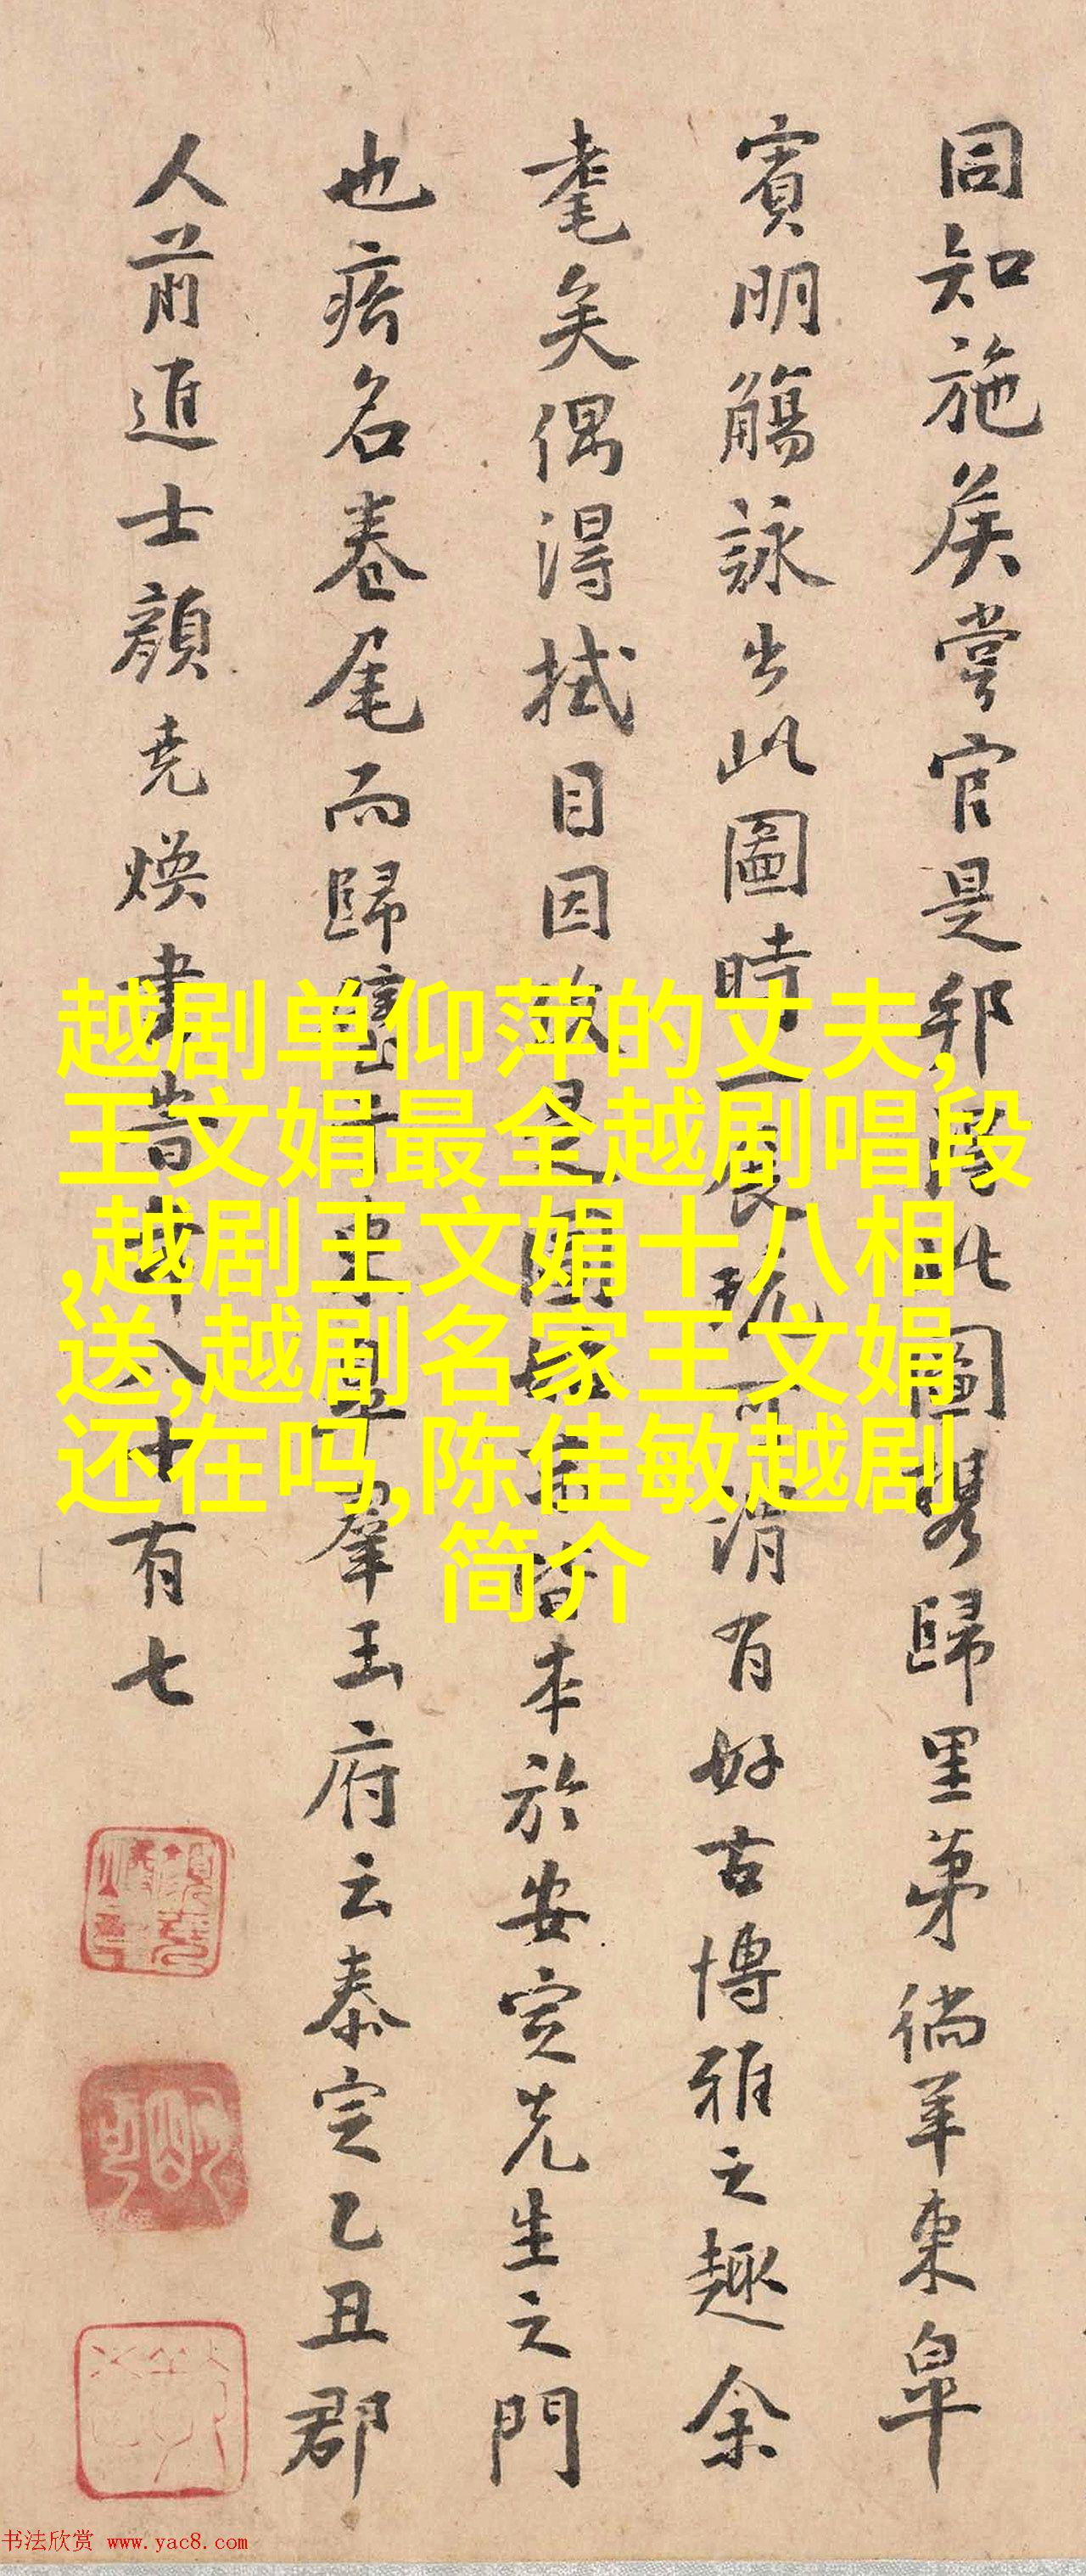 同知施侯嘗官是邦得此圖携歸里第徜羊東皐
賓明觴詠出此圖時一展玩可謂有好古博雅之趣余
耄矣偶得拭目因
本於安定先生之門
也瘩名卷尾而歸
東皐羣玉府云泰定乙丑郡
人前進士顔堯煥書
八十有七
越剧单仰萍的丈夫,
王文娟最全越剧唱段
,越剧王文娟十八相
送,越剧名家王文娟
还在吗,陈佳敏越剧
简介
书法欣赏 www.yac8.com